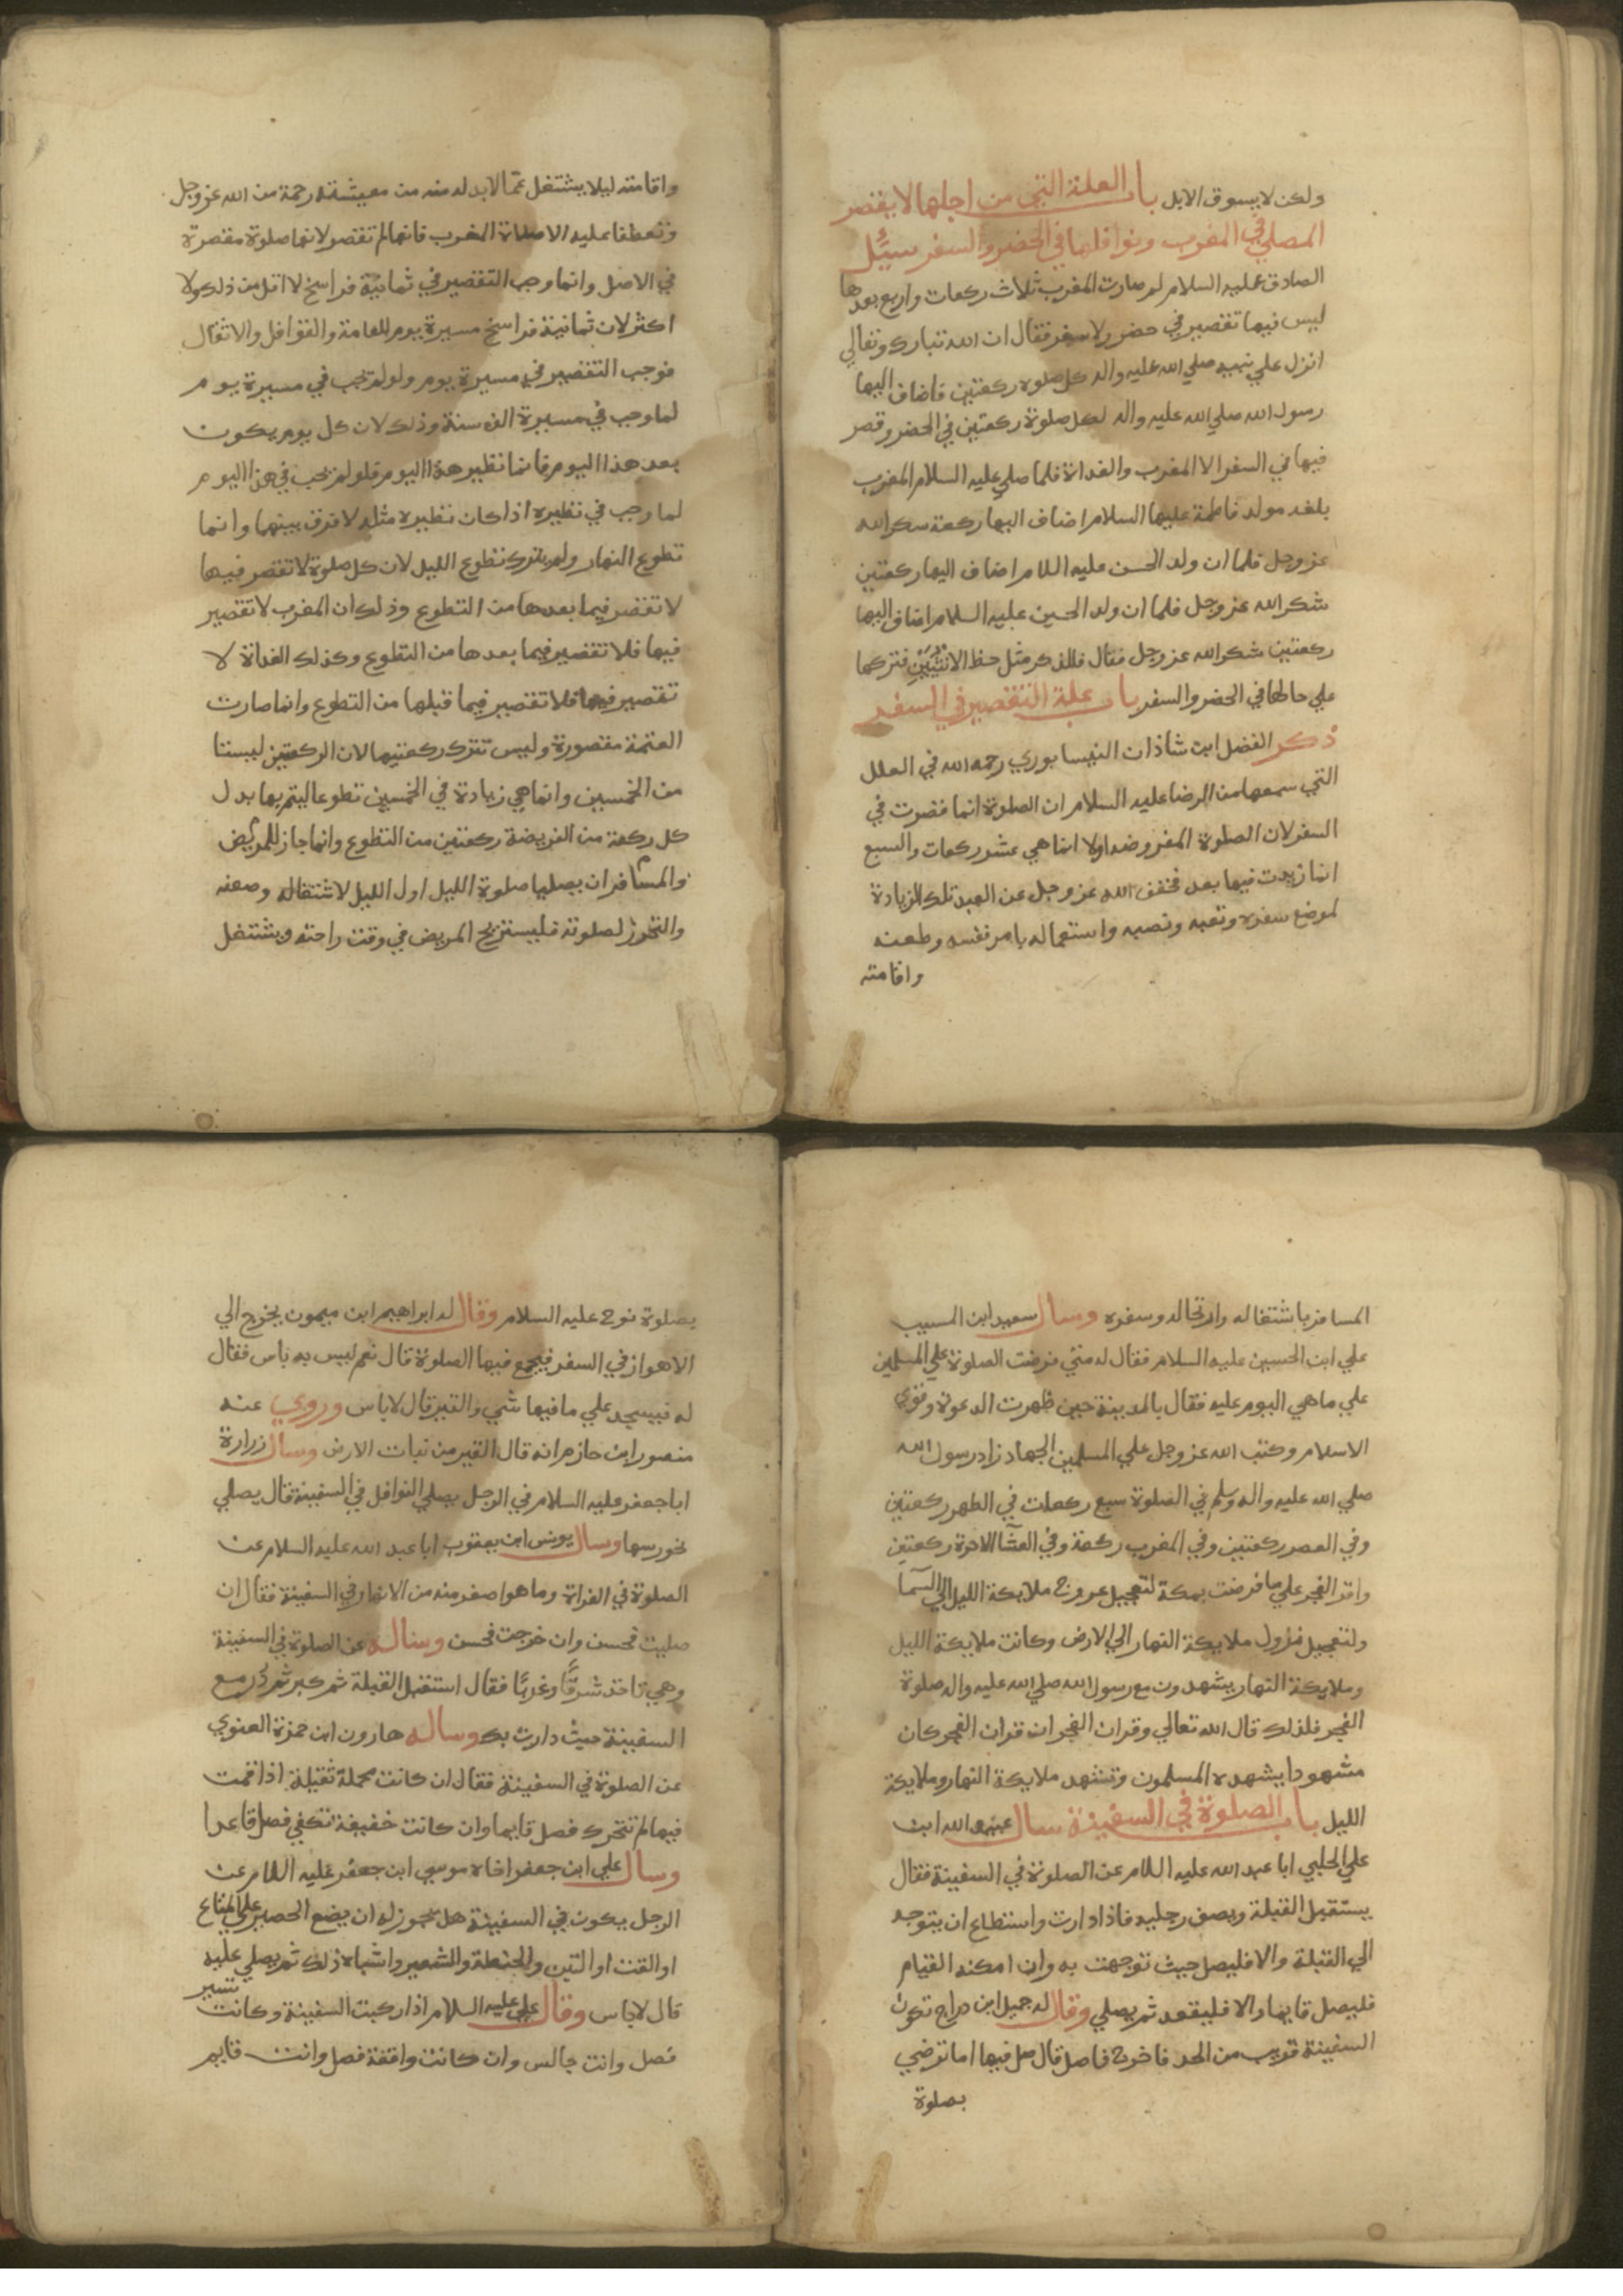 ولكن لا يسوق الابل باب العلة التي من اجلها لا يقصر
المصلي في المغرب ونوافلها في الحضر والسفر سئل
الصادق عليه السلام لم صارت المغرب ثلاث ركعات واربع بعدها
ليس فيها تقصير في حضر ولا سفر فقال ان الله تبارك وتعالي
انزل علي نبيه صلي الله عليه واله كل صلوة ركعتين فاضاف اليها
رسول الله صلي الله عليه واله لكل صلوة ركعتين في الحضر وقصر
فيها في السفر الا المغرب والغداة فلما صلي عليه السلام المغرب
بلغه مولد فاطمة عليها السلام اضاف اليها ركعة سكر الله
عز وجل فلما ان ولد الحسن عليه السلام اضاف اليها ركعتين
شكر الله عز وجل فلما ان ولد الحسين عليه السلام اضاف اليها
ركعتين شكر الله عز وجل فقال فللذكر مثل حظ الانثيين فتركها
علي حالها في الحضر والسفر باب علة التقصير في السفر
ذكر الفضل ابن شاذان النيسابوري رحمه الله في العلل
التي سمعها من الرضا عليه السلام ان الصلوة انما قصرت في
السفر لان الصلوة المفروضة اولا انما هي عشر ركعات والسبع
انما زيدت فيها بعد فخفف الله عز وجل عن العبد تلك الزيادة
لموضع سفره وتعبه ونصبه واستعماله بامر نفسه وطعنه
واقامته
واقامته ليلا يشتغل عما لابد له منه من معيشته رحمة من الله عز وجل
وتعطفا عليه الا صلاة المغرب فانها لم تقصر لانها صلوة مقصرة
في الاصل وانما وجب التقصير في ثمانية فراسخ لا اقل من ذلك ولا
اكثر لان ثمانية فراسخ مسيرة يوم للعامة والقوافل والاثقال
فوجب التقصير في مسيرة يوم ولو لم تجب في مسيرة يوم
لما وجب في مسيرة الف سنة وذلك لان كل يوم يكون
بعد هذا اليوم فانما نظير هذا اليوم فلو لم يجب في هذا اليوم
لما وجب في نظيره اذا كان نظيره مثله لا فرق بينهما وانما
تطوع النهار ولم يترك تطوع الليل لان كل صلوة لا تقصر فيها
لا تقصر فيما بعدها من التطوع وذلك ان المغرب لا تقصير
فيها فلا تقصير فيما بعدها من التطوع وكذلك الغداة لا
تقصير فيها فلا تقصير فيما قبلها من التطوع وانما صارت
العتمة مقصورة وليس تترك ركعتيها لان الركعتين ليستا
من الخمسين وانما هي زيادة في الخمسين تطوعا ليتم بها بدل
كل ركعة من الفريضة ركعتين من التطوع وانما جاز للمريض
والمسافر ان يصليا صلوة الليل اول الليل لاشتغاله وضعفه
والتحرز لصلوته فليستريح المريض في وقت راحته ويشتغل
المسافر باشتغاله وارتحاله وسفره وسال سعيد ابن المسيب
علي ابن الحسين عليه السلام فقال له متي فرضت الصلوة علي المسلمين
علي ما هي اليوم عليه فقال بالمدينة حين ظهرت الدعوة وقوي
الاسلام وكتب الله عز وجل علي المسلمين الجهاد زاد رسول الله
صلي الله عليه واله وسلم في الصلوة سبع ركعات في الظهر ركعتين
وفي العصر ركعتين وفي المغرب ركعة وفي العشا الاخرة ركعتين
واقر الفجر علي ما فرضت بمكة لتعجيل عروج ملايكة الليل الي السما
ولتعجيل نزول ملايكة النهار الي الارض وكانت ملايكة الليل
وملايكة النهار يشهدون مع رسول الله صلي الله عليه واله صلوة
الفجر فلذلك قال الله تعالي وقران الفجر ان قران الفجر كان
مشهودا يشهده المسلمون وتشهد ملايكة النهار وملايكة
الليل باب الصلوة في السفينة سال عبيد الله ابن
علي الحلبي ابا عبد الله عليه السلام عن الصلوة في السفينة فقال
يستقبل القبلة ويصف رجليه فاذا دارت واستطاع ان يتوجه
الي القبلة والا فليصل حيث توجهت به وان امكنه القيام
فليصل قايما والا فليقعد ثم يصلي وقال له جميل ابن دراج تكون
السفينة قريب من الجد فاخرج فاصل قال صل فيها اما ترضي
بصلوة
بصلوة نوح عليه السلام وقال له ابراهيم ابن ميمون يخرج الي
الاهواز في السفر فيجمع فيها الصلوة قال نعم ليس به باس فقال
له فيسجد علي ما فيها شي والقير قال لا باس وروي عنه
منصور ابن حازم انه قال القير من نبات الارض وسال زرارة
ابا جعفر عليه السلام في الرجل يصلي النوافل في السفينة قال يصلي
نحو رسها وسال يونس ابن يعقوب ابا عبد الله عليه السلام عن
الصلوة في الفراة وما هو اصغر منه من الانهار في السفينة فقال ان
صليت فحسن وان خرجت فحسن وساله عن الصلوة في السفينة
وهي تاخذ شرقا وغربا فقال استقبل القبلة ثم كبر ثم در مع
السفينة حيث دارت بك وساله هارون ابن حمزة الغنوي
عن الصلوة في السفينة فقال ان كانت محملة ثقيلة اذا قمت
فيها لم تتحرك فصل قايما وان كانت خفيفة تكفي فصل قاعدا
وسال علي ابن جعفر اخاه موسي ابن جعفر عليه السلام عن
الرجل يكون في السفينة هل يجوز له ان يضع الحصير علي المتاع
او القت او التبن والحنطة والشعير واشباه ذلك ثم يصلي عليه
قال لا باس وقال علي عليه السلام اذا ركبت السفينة وكانت تسير
فصل وانت جالس وان كانت واقفة فصل وانت قايم